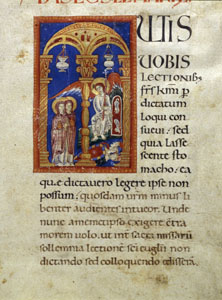 UTIS
VOBIS
LECTIONIBS
FRS KMI P
dictatum
loqui con
sueui; sed
quia lasse
scente sto
macho, ea
que dictauero legere ipse non
possum; quosdam urm minus li
benter audientes intueor. Unde
nunc amemetipso exigere contra
morem uolo. ut int sacra missarū
sollemnia lectionē sci euglii non
dictando sed colloquendo edisserā.